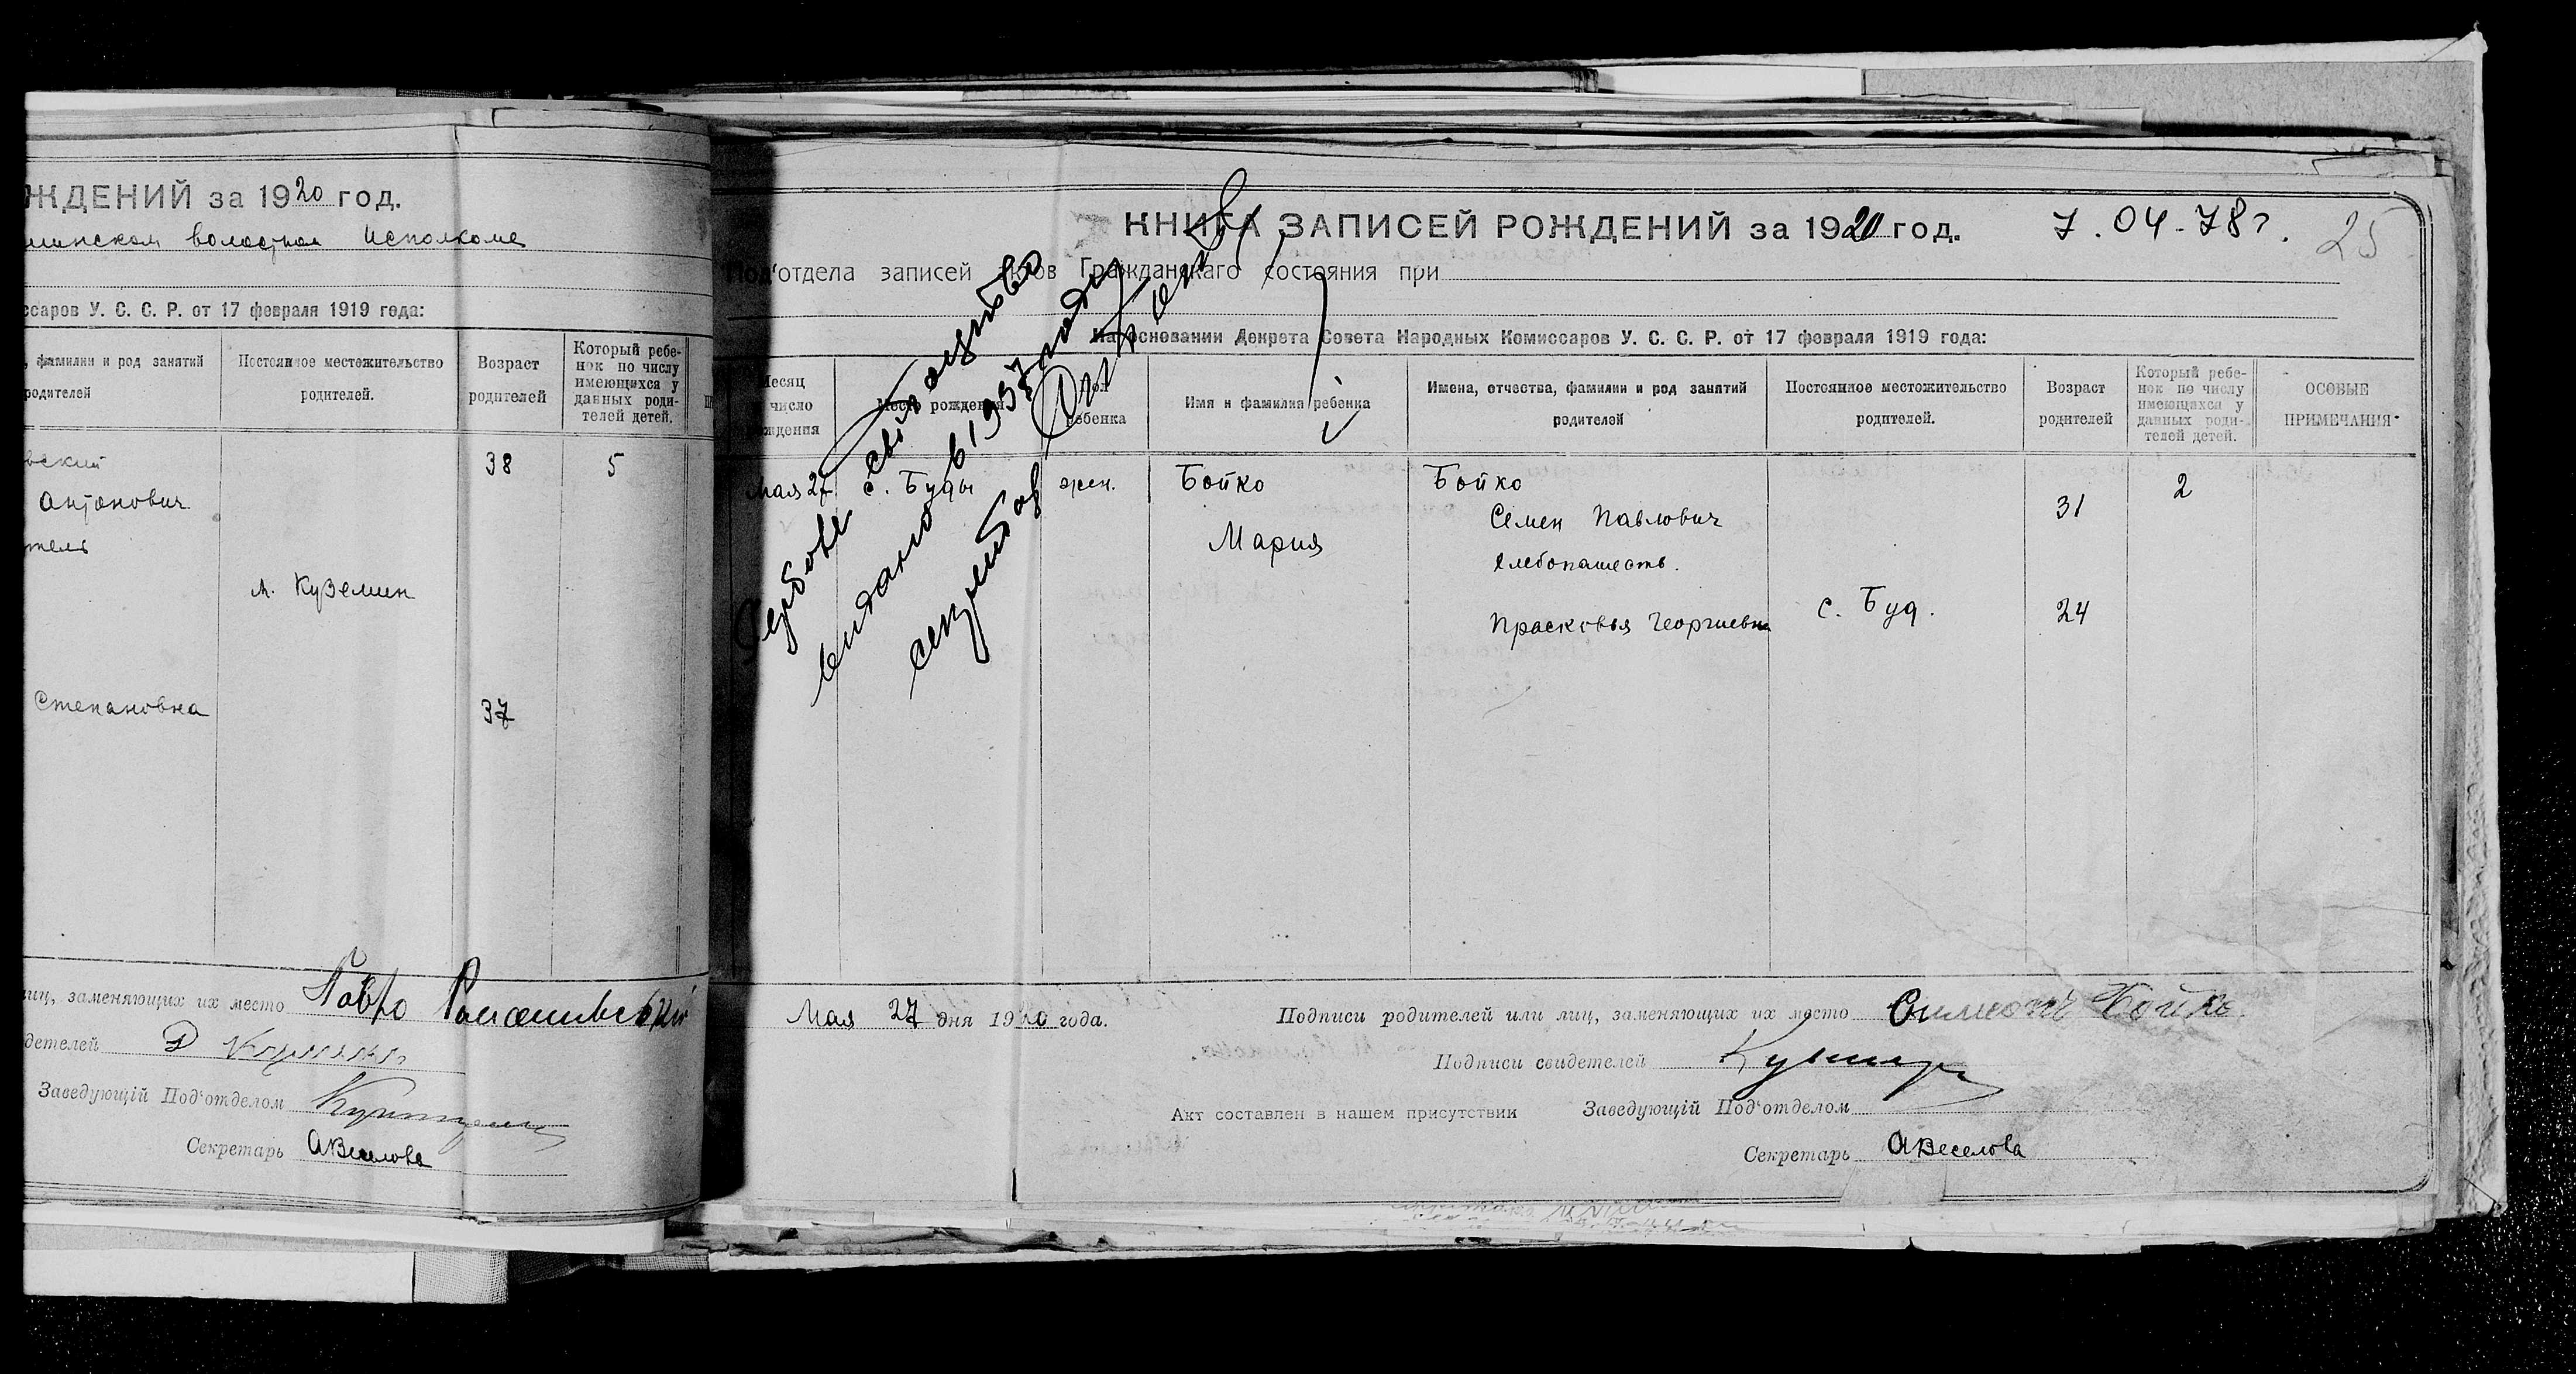 ЖДЕНИЙ за 1920 год.
волостном Исполкоме
ссаров У. С. С. Р. от 17 февраля 1919 года:
, фамилии и род занятий
родителей
Постоянное местожительство
родителей.
Возраст
родителей
Который ребе-
нок по числу
имеющихся у
данных роди-
телей детей.
вский
Антонович
тель
38
5
м. Куземин
Степановна
37
лиц, заменяющих их место Павло
детелей
Заведующій Под'отделом
Секретарь АВеселова
КНИГА ЗАПИСЕЙ РОЖДЕНИЙ за 1920 год.
7.04-78г.
25
Под'отдела записей актов Гражданскаго состояния при
На основании Декрета Совета Народных Комиссаров У. С. С. Р. от 17 февраля 1919 года:
Месяц
и число
рождения
Место рождения
Пол
ребенка
Имя и фамилия ребенка
Имена, отчества, фамилии и род занятий
родителей
Постоянное местожительство
родителей.
Возраст
родителей
Который ребе-
нок по числу
имеющихся у
данных роди-
телей детей.
ОСОБЫЕ
ПРИМЕЧАНИЯ
Гербове свідоцтво
видано в 1957 году
Мая 27
с. Буды
жен.
Бойко
Мария
Бойко
Семен Павлович
хлебопашеств.
Прасковья Георгиевна
с. Буд.
31
24
2
Мая 27 дня 1920 года.
Подписи родителей или лиц, заменяющих их место Симеонъ Бойко
Подписи свидетелей
Акт составлен в нашем присутствии
Заведующій Под'отделом
Секретарь АВеселова